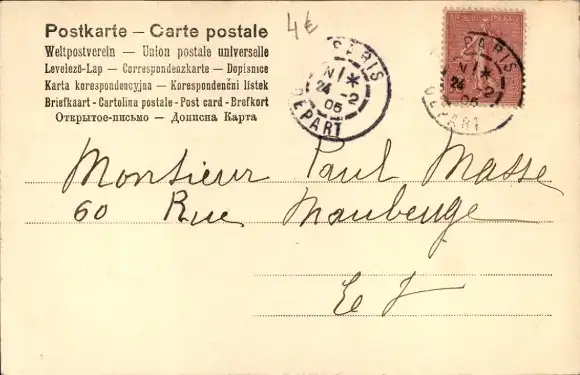 Postkarte – Carte postale
Weltpostverein – Union postale universelle
Levelező-Lap – Correspondenzkarte – Dopisnice
Karta korespondencyjna – Korespondenční lístek
Briefkaart - Cartolina postale - Post card - Brefkort
Открытое-письмо – Дописна Карта
4€
PARIS
24 -2
05
DEPART
PARIS
24 -2
05
DEPART
Monsieur Paul Masse
60 Rue Maubeuge